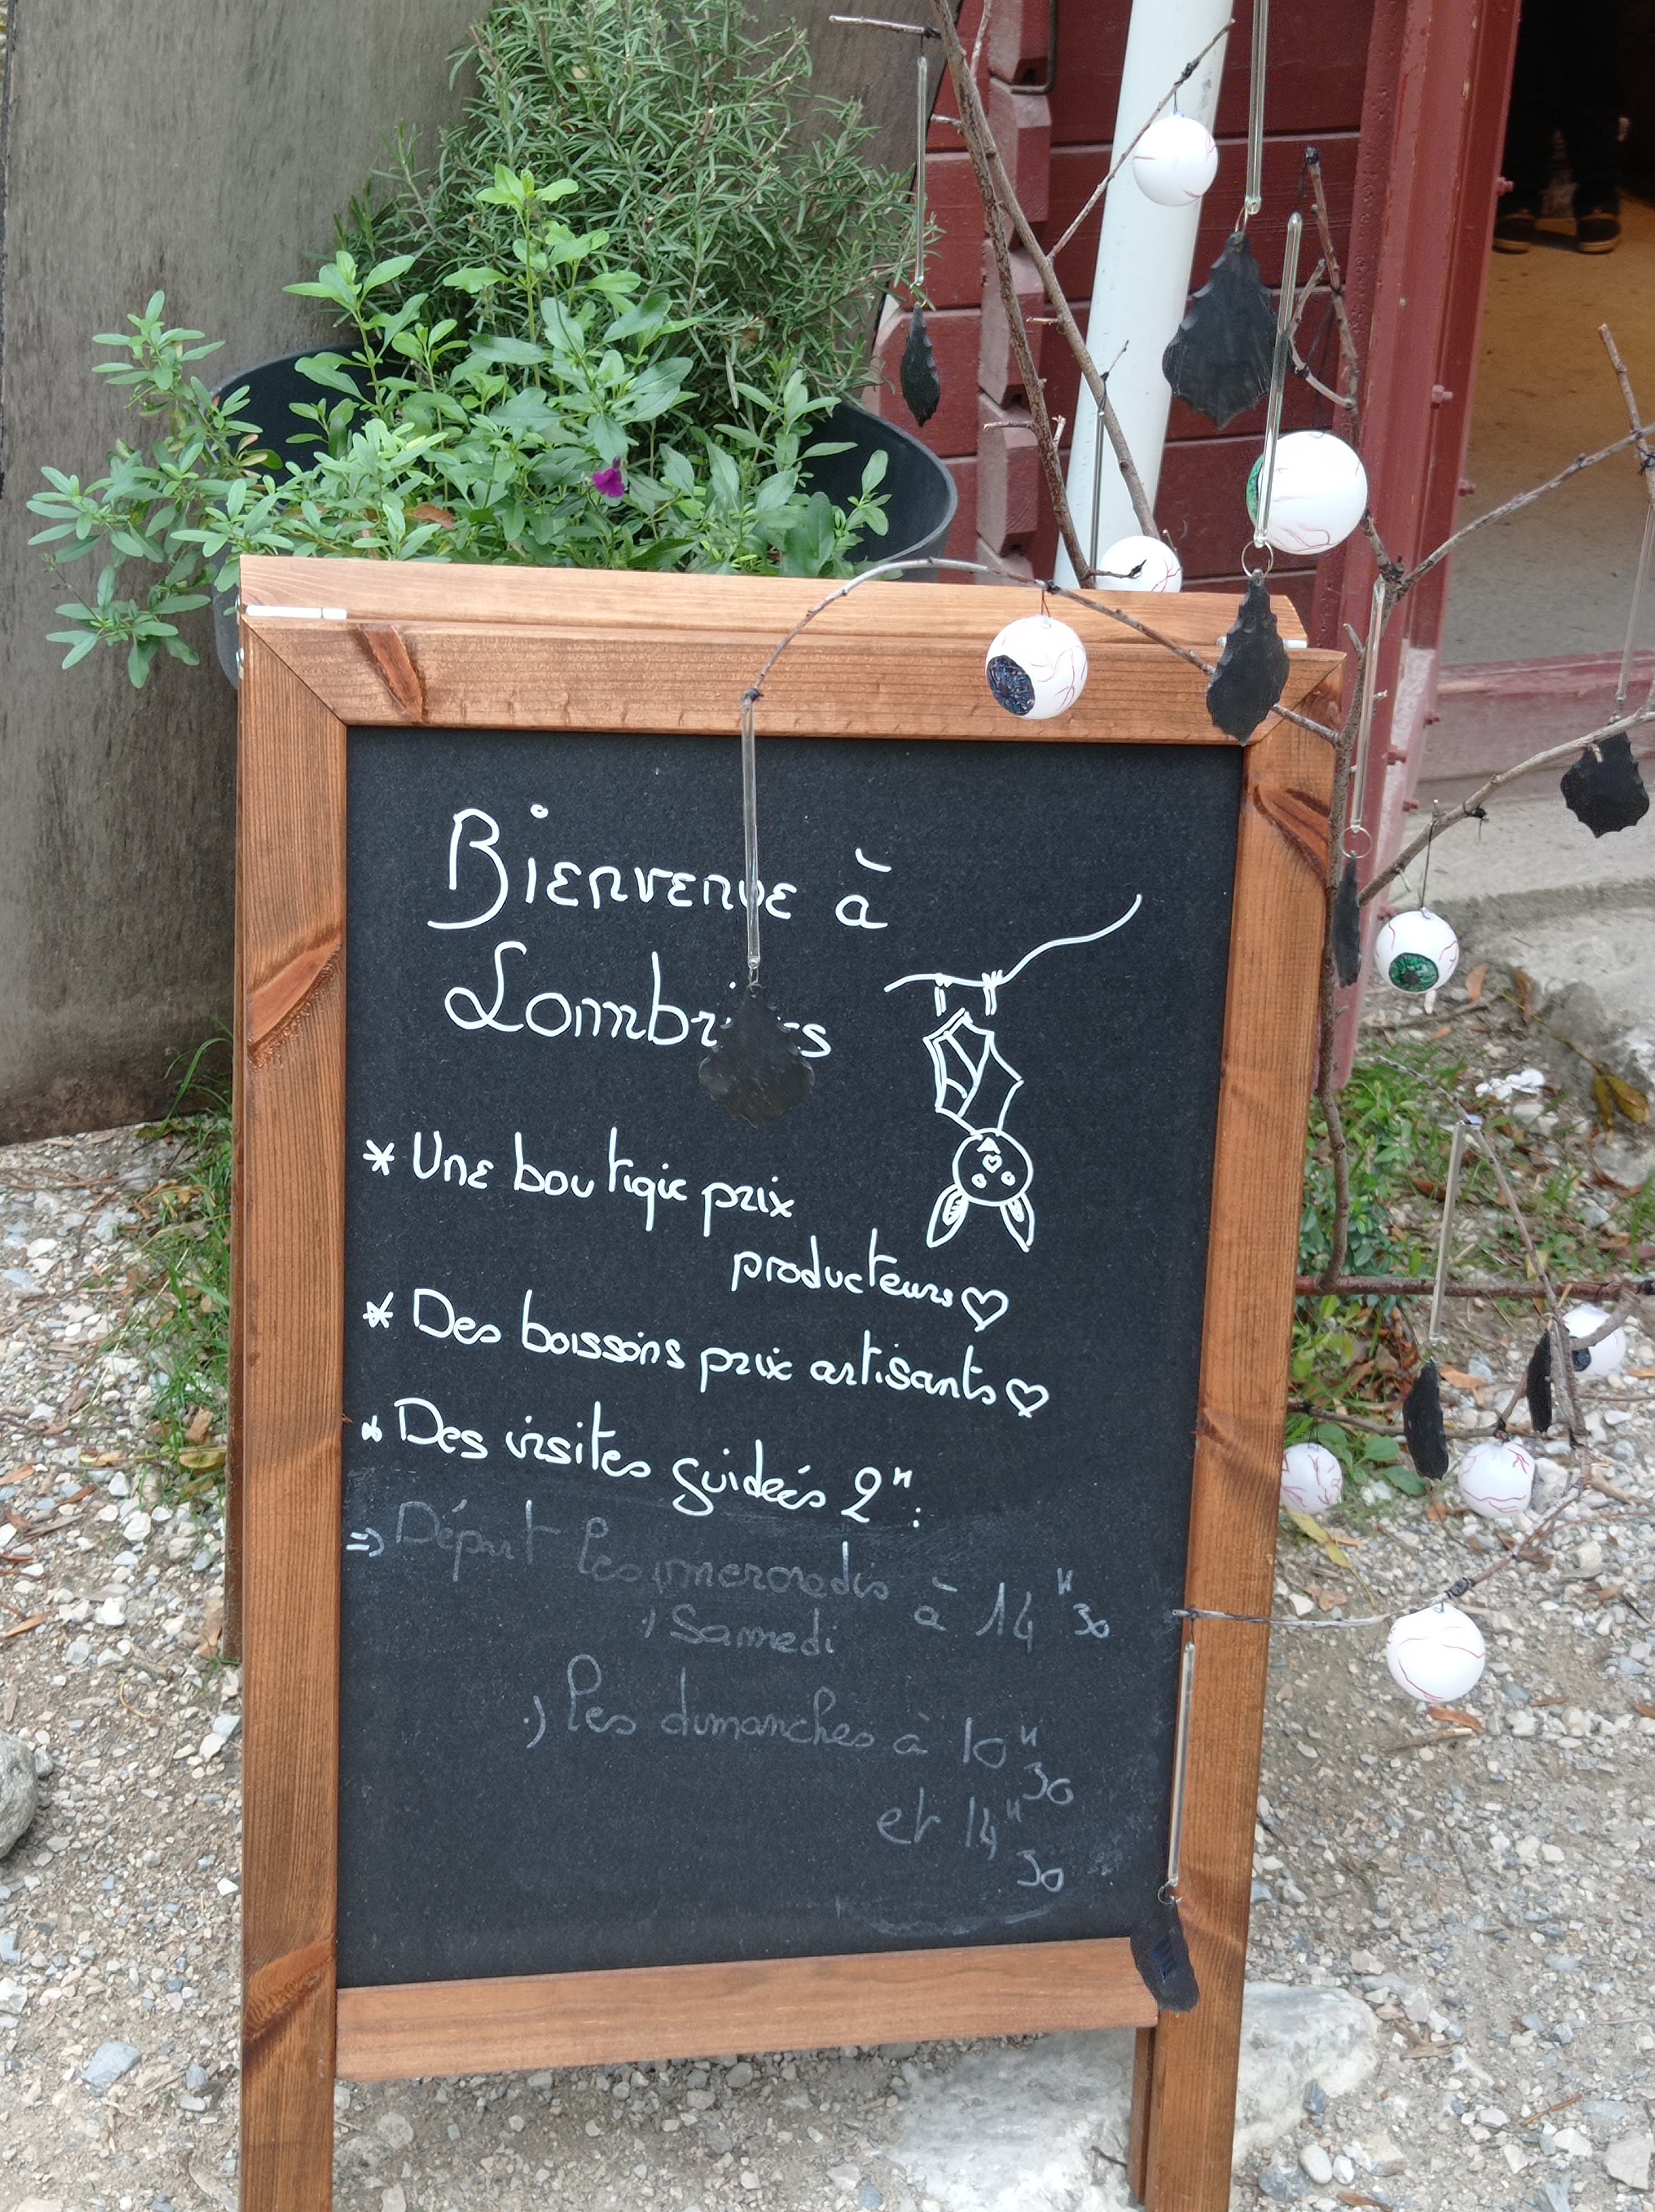 Bienvenue à
* Une boutiqie prix
producteurs
* Des boissons prix artisants
* Des visites guideés 2H :
=> Départ les mercredis à 14H30
Samedi
les dimanches à 10H30
et 14H30